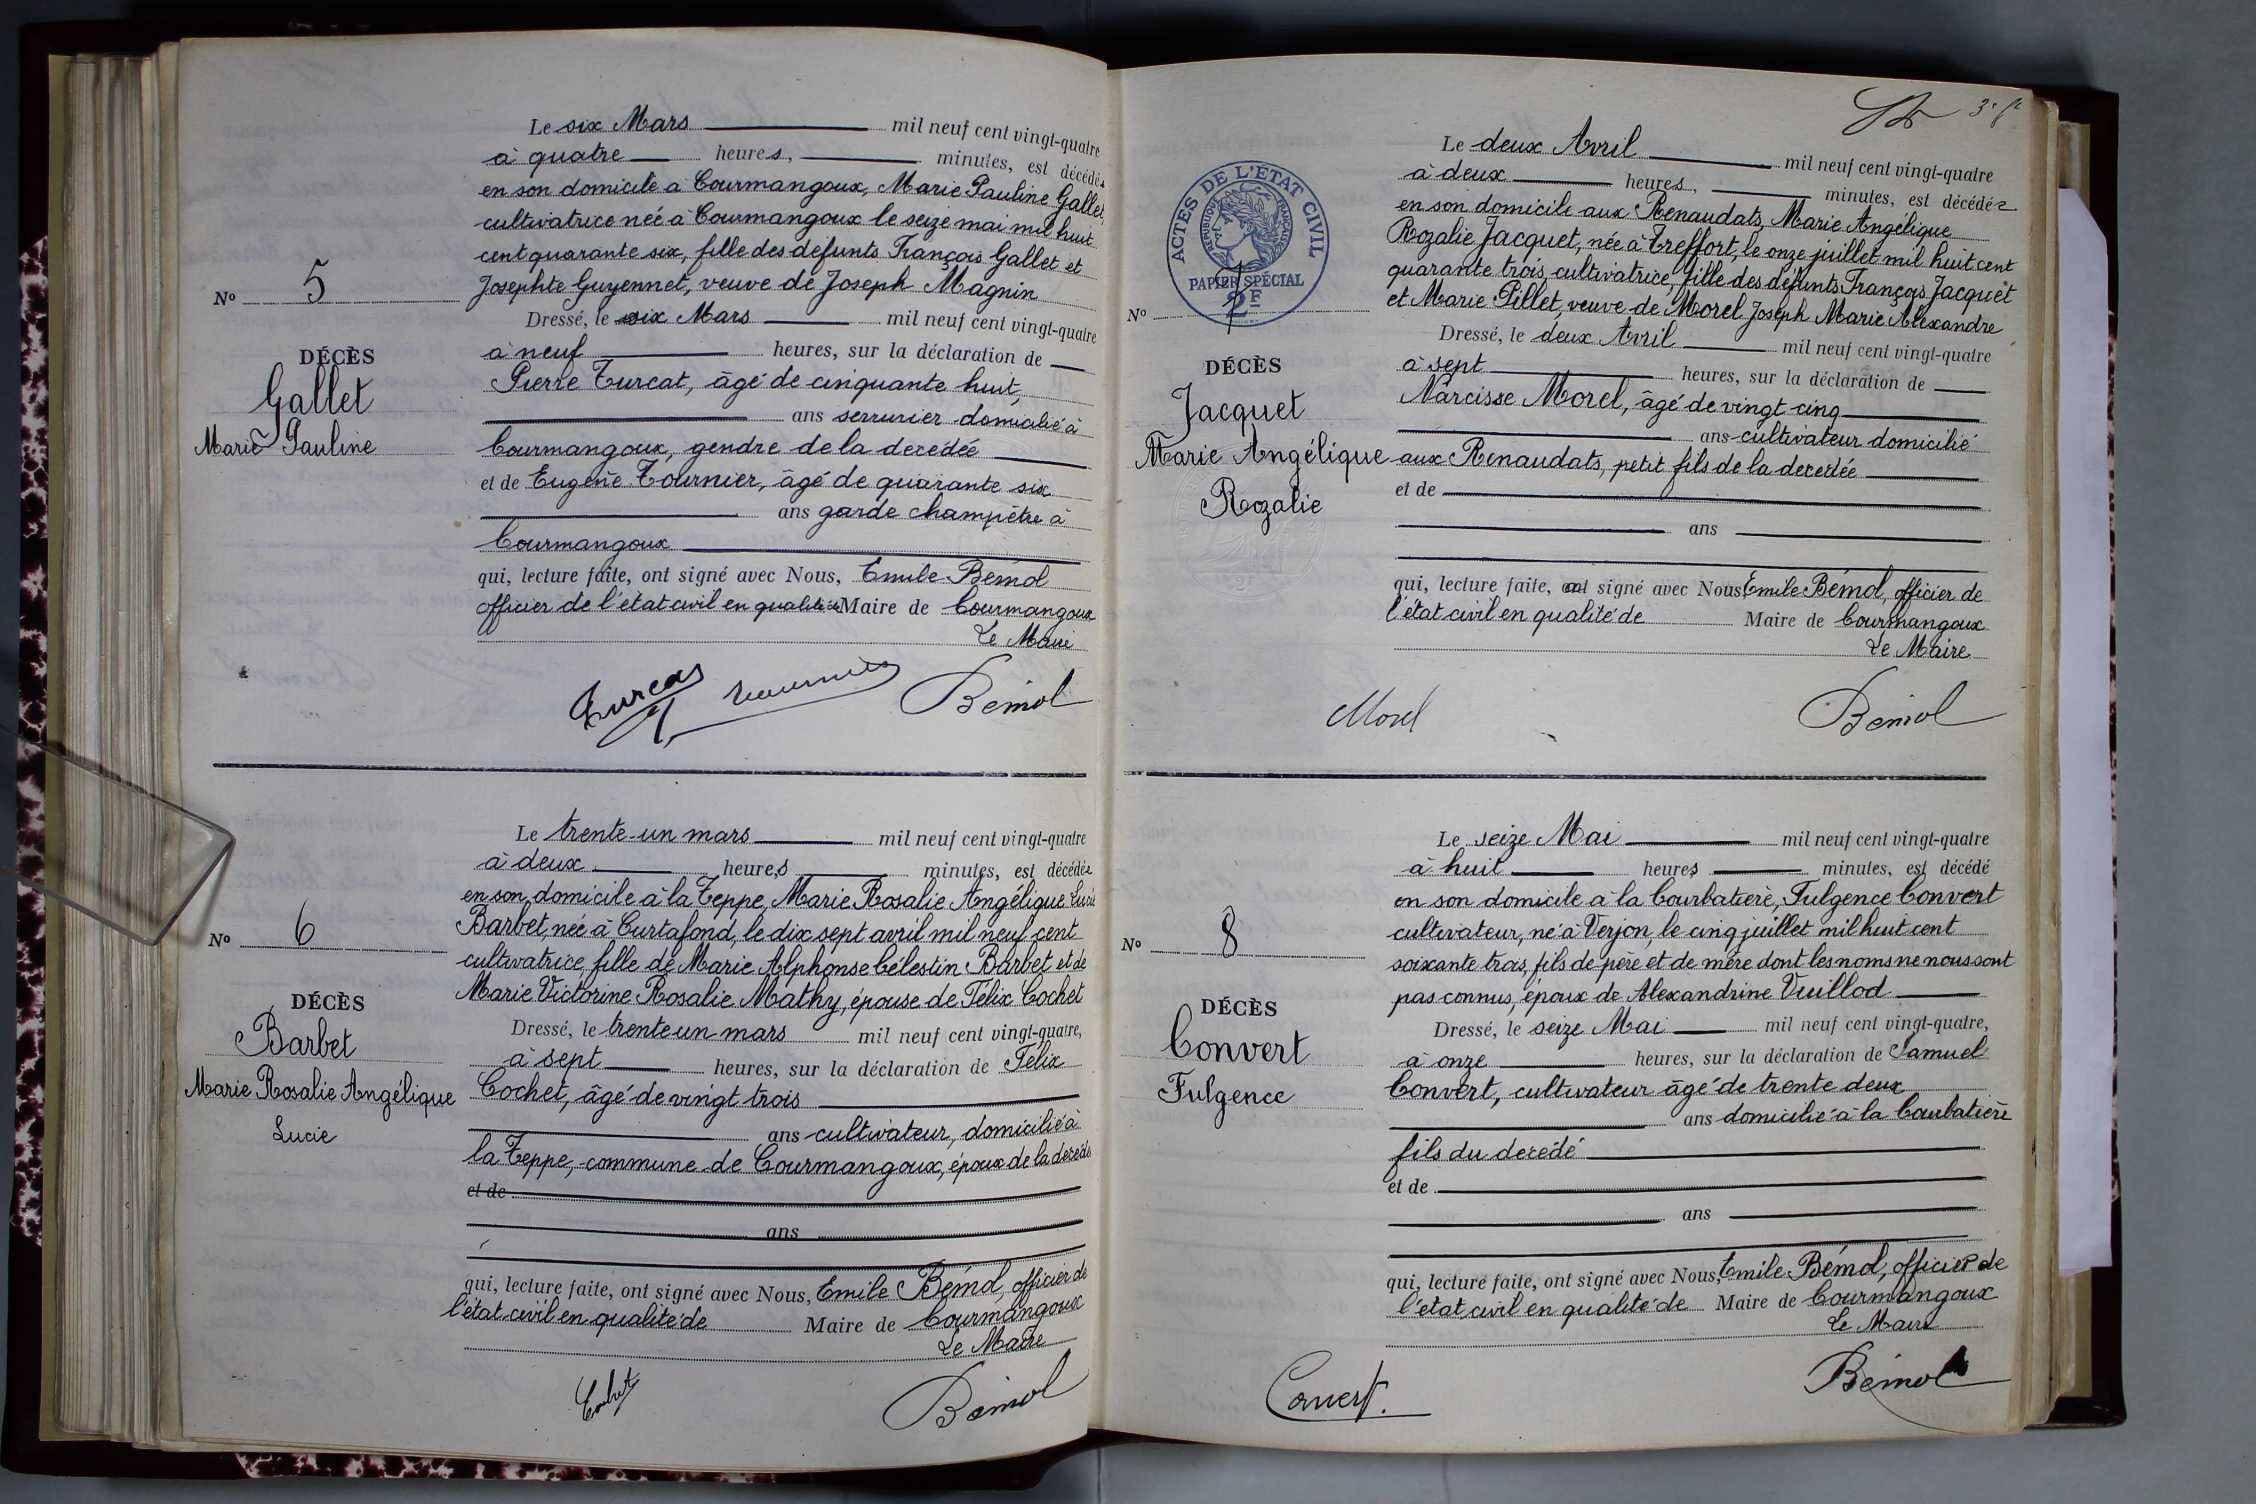 Le six Mars mil neuf cent vingt-quatre
à quatre heures, minutes, est décédée
en son domicile à Courmangoux, Marie Pauline Gallet,
cultivatrice née à Courmangoux le seize mai mil huit
cent quarante six, fille des défunts François Gallet et
Josephte Guyennet, veuve de Joseph Magnin
No 5
Dressé, le six Mars mil neuf cent vingt-quatre
à neuf heures, sur la déclaration de
DÉCÈS
Gallet
Marie Pauline
Pierre Turcat, âgé de cinquante huit,
ans serrurier domicilié à
Courmangoux, gendre de la decédée
et de Eugène Tournier, âgé de quarante six
ans garde champêtre à
Courmangoux
qui, lecture faite, ont signé avec Nous, Emile Bémol
officier de l'état civil en qualité de Maire de Courmangoux
Le Maire
Turcat Tournier Bémol
Le trente-un mars mil neuf cent vingt-quatre
à deux heures minutes, est décédée
en son domicile à la Teppe, Marie Rosalie Angélique Lucie
Barbet, née à Curtafond, le dix sept avril mil neuf cent
No 6
cultivatrice, fille de Marie Alphonse Célestin Barbet et de
Marie Victorine Rosalie Mathy, épouse de Félix Cochet
DÉCÈS
Barbet
Marie Rosalie Angélique
Lucie
Dressé, le trente un mars mil neuf cent vingt-quatre,
à sept heures, sur la déclaration de Félix
Cochet, âgé de vingt trois
ans cultivateur, domicilié à
la Teppe, commune de Courmangoux, époux de la decédée
et de
ans
qui, lecture faite, ont signé avec Nous, Emile Bémol, officier de
l'état civil en qualité de Maire de Courmangoux
Le Maire
Bémol
3e
Le deux Avril mil neuf cent vingt-quatre
à deux heures, minutes, est décédée
en son domicile aux Renaudats, Marie Angélique
Rozalie Jacquet, née à Treffort, le onze juillet mil huit cent
quarante trois, cultivatrice, fille des défunts François Jacquet
et Marie Pillet, veuve de Morel Joseph Marie Alexandre
ACTES DE L'ÉTAT CIVIL
RÉPUBLIQUE FRANÇAISE
PAPIER SPÉCIAL
2F
No 7
DÉCÈS
Jacquet
Marie Angélique
Rozalie
Dressé, le deux Avril mil neuf cent vingt-quatre
à sept heures, sur la déclaration de
Narcisse Morel, âgé de vingt cinq
ans cultivateur domicilié
aux Renaudats, petit fils de la decedée
et de
ans
qui, lecture faite, ont signé avec Nous, Emile Bémol, officier de
l'état civil en qualité de Maire de Courmangoux
Le Maire
Morel Bémol
Le seize Mai mil neuf cent vingt-quatre
à huit heures minutes, est décédé
en son domicile à la Courbatière, Fulgence Convert
cultivateur, né à Verjon, le cinq juillet mil huit cent
No 8
soixante trois, fils de père et de mère dont les noms ne nous sont
pas connus, époux de Alexandrine Vuillod
DÉCÈS
Convert
Fulgence
Dressé, le seize Mai mil neuf cent vingt-quatre,
à onze heures, sur la déclaration de Samuel
Convert, cultivateur âgé de trente deux
ans domicilié à la Courbatière
fils du decédé
et de
ans
qui, lecture faite, ont signé avec Nous, Emile Bémol, officier de
l'état civil en qualité de Maire de Courmangoux
Le Maire
Convert. Bémol